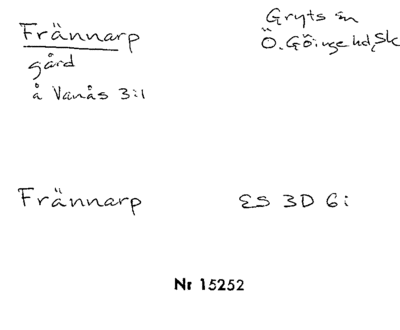 Frännarp
gård
å Vanås 3:1
Gryts sn
Ö. Göinge hd, Sk
Frännarp
ES 3D 6i
Nr 15252